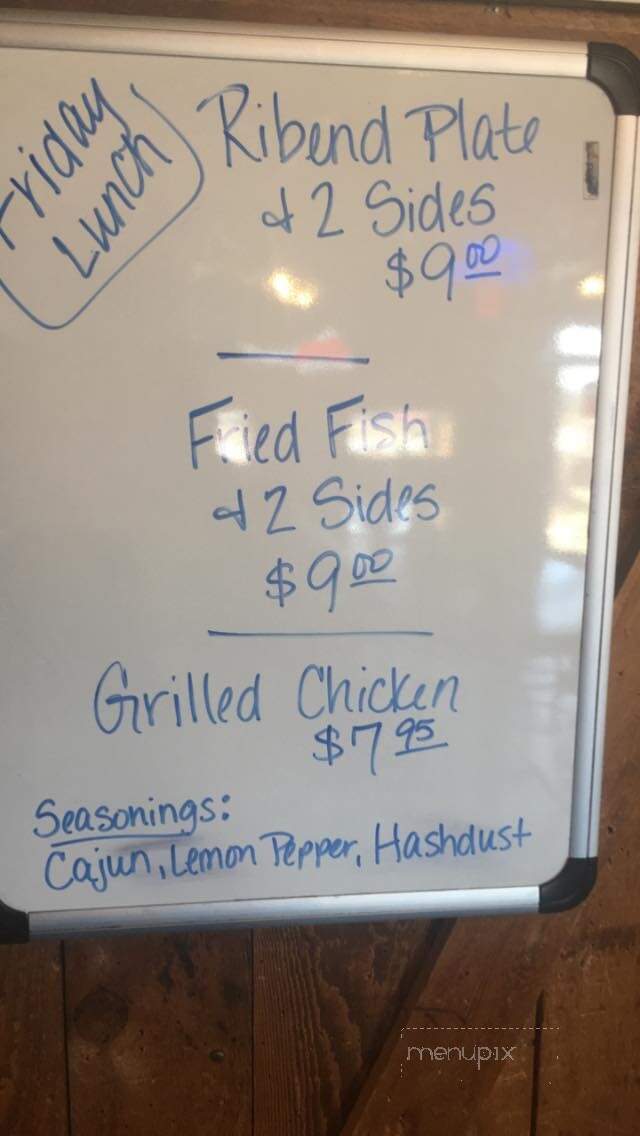 Friday
Lunch
Ribend Plate
& 2 Sides
$9.00
Fried Fish
& 2 Sides
$9.00
Grilled Chicken
$7.95
Seasonings:
Cajun, Lemon Pepper, Hashdust
menupix